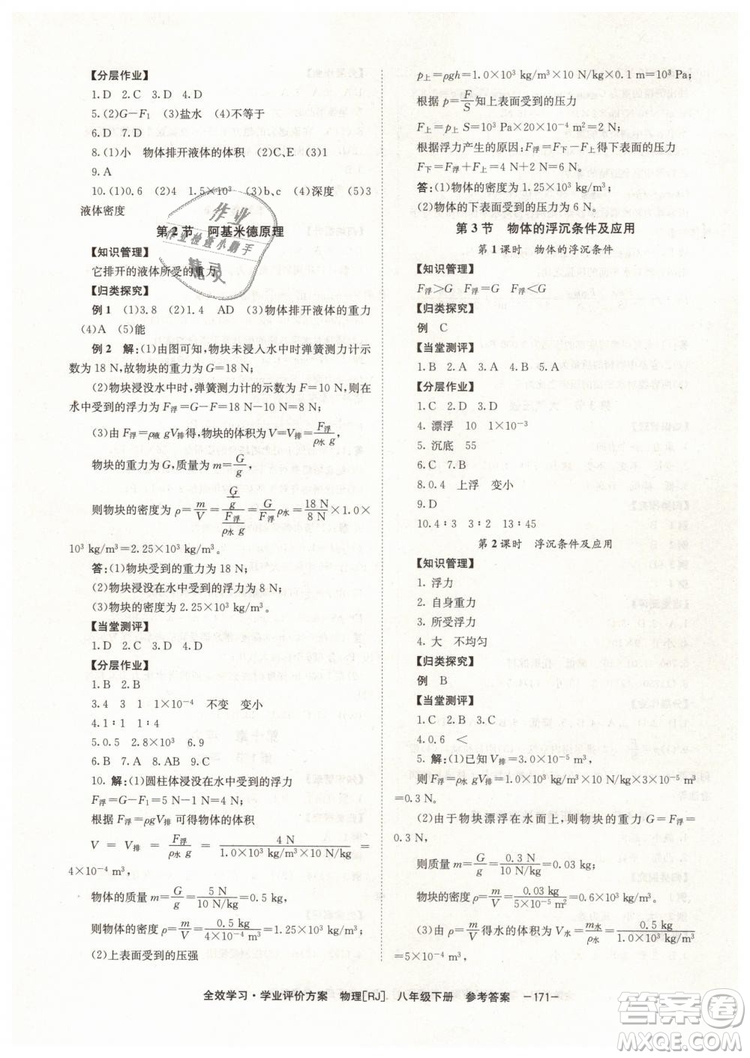 【分层作业】
1. D　2. C　3. D　4. D
5. (2)G－F₁　(3)盐水　(4)不等于
6. D　7. D
8. (1)小　物体排开液体的体积　(2)C、E　(3)1
9. A
10. (1)0.6　(2)4　1.5×10³　(4)深度　(5)3
液体密度
第 2 节　阿基米德原理
【知识管理】
它排开的液体所受的重力
【归类探究】
例 1　(1)3.8　(2)1.4　AD　(3)物体排开液体的重力
(4)A　(5)能
例 2　解：(1)由图可知，物块未浸入水中时弹簧测力计示
数为 18 N，故物块的重力为 G＝18 N；
(2)物块浸没水中时，弹簧测力计的示数为 10 N，则在
水中受到的浮力为 F浮＝G－F＝18 N－10 N＝8 N；
(3)由 F浮＝ρ液 gV排得，物块的体积为 V＝V排＝F浮/ρ水 g，
物块的重力为 G，质量为 m＝G/g，
则物块的密度为 ρ＝m/V＝(G/g)/(F浮/ρ水 g)＝G/F浮 ρ水＝18 N/8 N×1.0×
10³ kg/m³＝2.25×10³ kg/m³。
答：(1)物块受到的重力为 18 N；
(2)物块浸没在水中时，在水中受到的浮力为 8 N；
(3)物块的密度为 2.25×10³ kg/m³。
【当堂测评】
1. D　2. C　3. D　4. D
【分层作业】
1. B　2. B
3. 4　3　1　1×10⁻⁴　不变　变小
4. 1∶1　1∶4
5. 0.5　2.63　6.9
6. B　7. A　8. AB　9. C
10. 解：(1)圆柱体浸没在水中受到的浮力
F浮＝G－F₁＝5 N－1 N＝4 N；
根据 F浮＝ρgV排 可得物体的体积
V ＝ V排 ＝ F浮/ρ水 g ＝ 4 N/(1.0×10³ kg/m³×10 N/kg) ＝
4×10⁻⁴ m³，
物体的质量 m＝G/g＝5 N/10 N/kg＝0.5 kg，
则物体的密度 ρ＝m/V＝0.5 kg/4×10⁻⁴ m³＝1.25×10³ kg/m³；
(2)上表面受到的压强
p上＝ρgh＝1.0×10³ kg/m³×10 N/kg×0.1 m＝10³ Pa；
根据 p＝F/S知上表面受到的压力
F上＝p上 S＝10³ Pa×20×10⁻⁴ m²＝2 N；
根据浮力产生的原因：F浮＝F下－F上得
F下＝F上＋F浮＝4 N＋2 N＝6 N。
答：(1)物体的密度为 1.25×10³ kg/m³；
(2)物体的下表面受到的压力为 6 N。
第 3 节　物体的浮沉条件及应用
第 1 课时　物体的浮沉条件
【知识管理】
F浮＞G　F浮＝G　F浮＝G　F浮＜G
【归类探究】
例　C
【当堂测评】
1. B　2. A　3. A　4. A　5. A
【分层作业】
1. C　2. D　3. D
4. 漂浮　10　1×10⁻³
5. 沉底　55
6. C　7. B
8. 0.4　上浮　变小
9. D
10. 4∶3　3∶2　13∶45
第 2 课时　浮沉条件及应用
【知识管理】
1. 浮力
2. 自身重力
3. 所受浮力
4. 大　不均匀
【归类探究】
例　B
【当堂测评】
1. C　2. B　3. C
4. 0.6　＜
5. 解：(1)已知 V排＝3.0×10⁻⁵ m³，
则 F浮＝ρ水 gV排＝1.0×10³ kg/m³×10 N/kg×3×10⁻⁵ m³
＝0.3 N。
(2)由于物块漂浮在水面，所以物块的重力 G＝F浮＝
0.3 N，
则质量 m＝G/g＝0.3 N/10 N/kg＝0.03 kg，
物块的密度 ρ＝m/V＝0.03 kg/5×10⁻⁵ m³＝0.6×10³ kg/m³。
(3)由 ρ＝m/V得水的体积为 V水＝m水/ρ水＝0.5 kg/1.0×10³ kg/m³
＝5×10⁻⁴ m³，
全效学习·学业评价方案　物理[RJ]　八年级下册　参考答案　－171－
作业
作业检查小助手
精灵